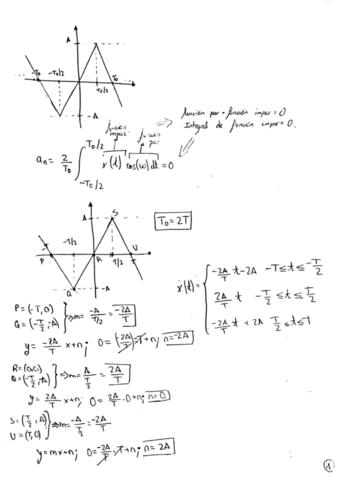 A
-T₀ -T₀/2 T₀/2 T₀
-A
función impar función par
función par · función impar = 0
Integral de función impar = 0.
aₙ = 2/T₀ ∫ T₀/2 -T₀/2 x(t) cos(ω) dt = 0
A S
T₀ = 2T
-T/2 P R T/2 U
Q -A
x(t) = { -2A/T t - 2A -T ≤ t ≤ -T/2
2A/T t -T/2 ≤ t ≤ T/2
-2A/T t + 2A T/2 ≤ t ≤ T
P = (-T, 0)
Q = (-T/2, A) } ⇒ m = -A/T/2 = -2A/T
y = -2A/T x + n; 0 = (-2A/T) · -T + n; n = -2A
R = (0,0)
Q = (-T/2, A) } ⇒ m = A/T/2 = 2A/T
y = 2A/T x + n; 0 = 2A/T · 0 + n; n = 0
S = (T/2, A)
U = (T, 0) } ⇒ m = -A/T/2 = -2A/T
y = mx + n; 0 = -2A/T · T + n; n = 2A
1